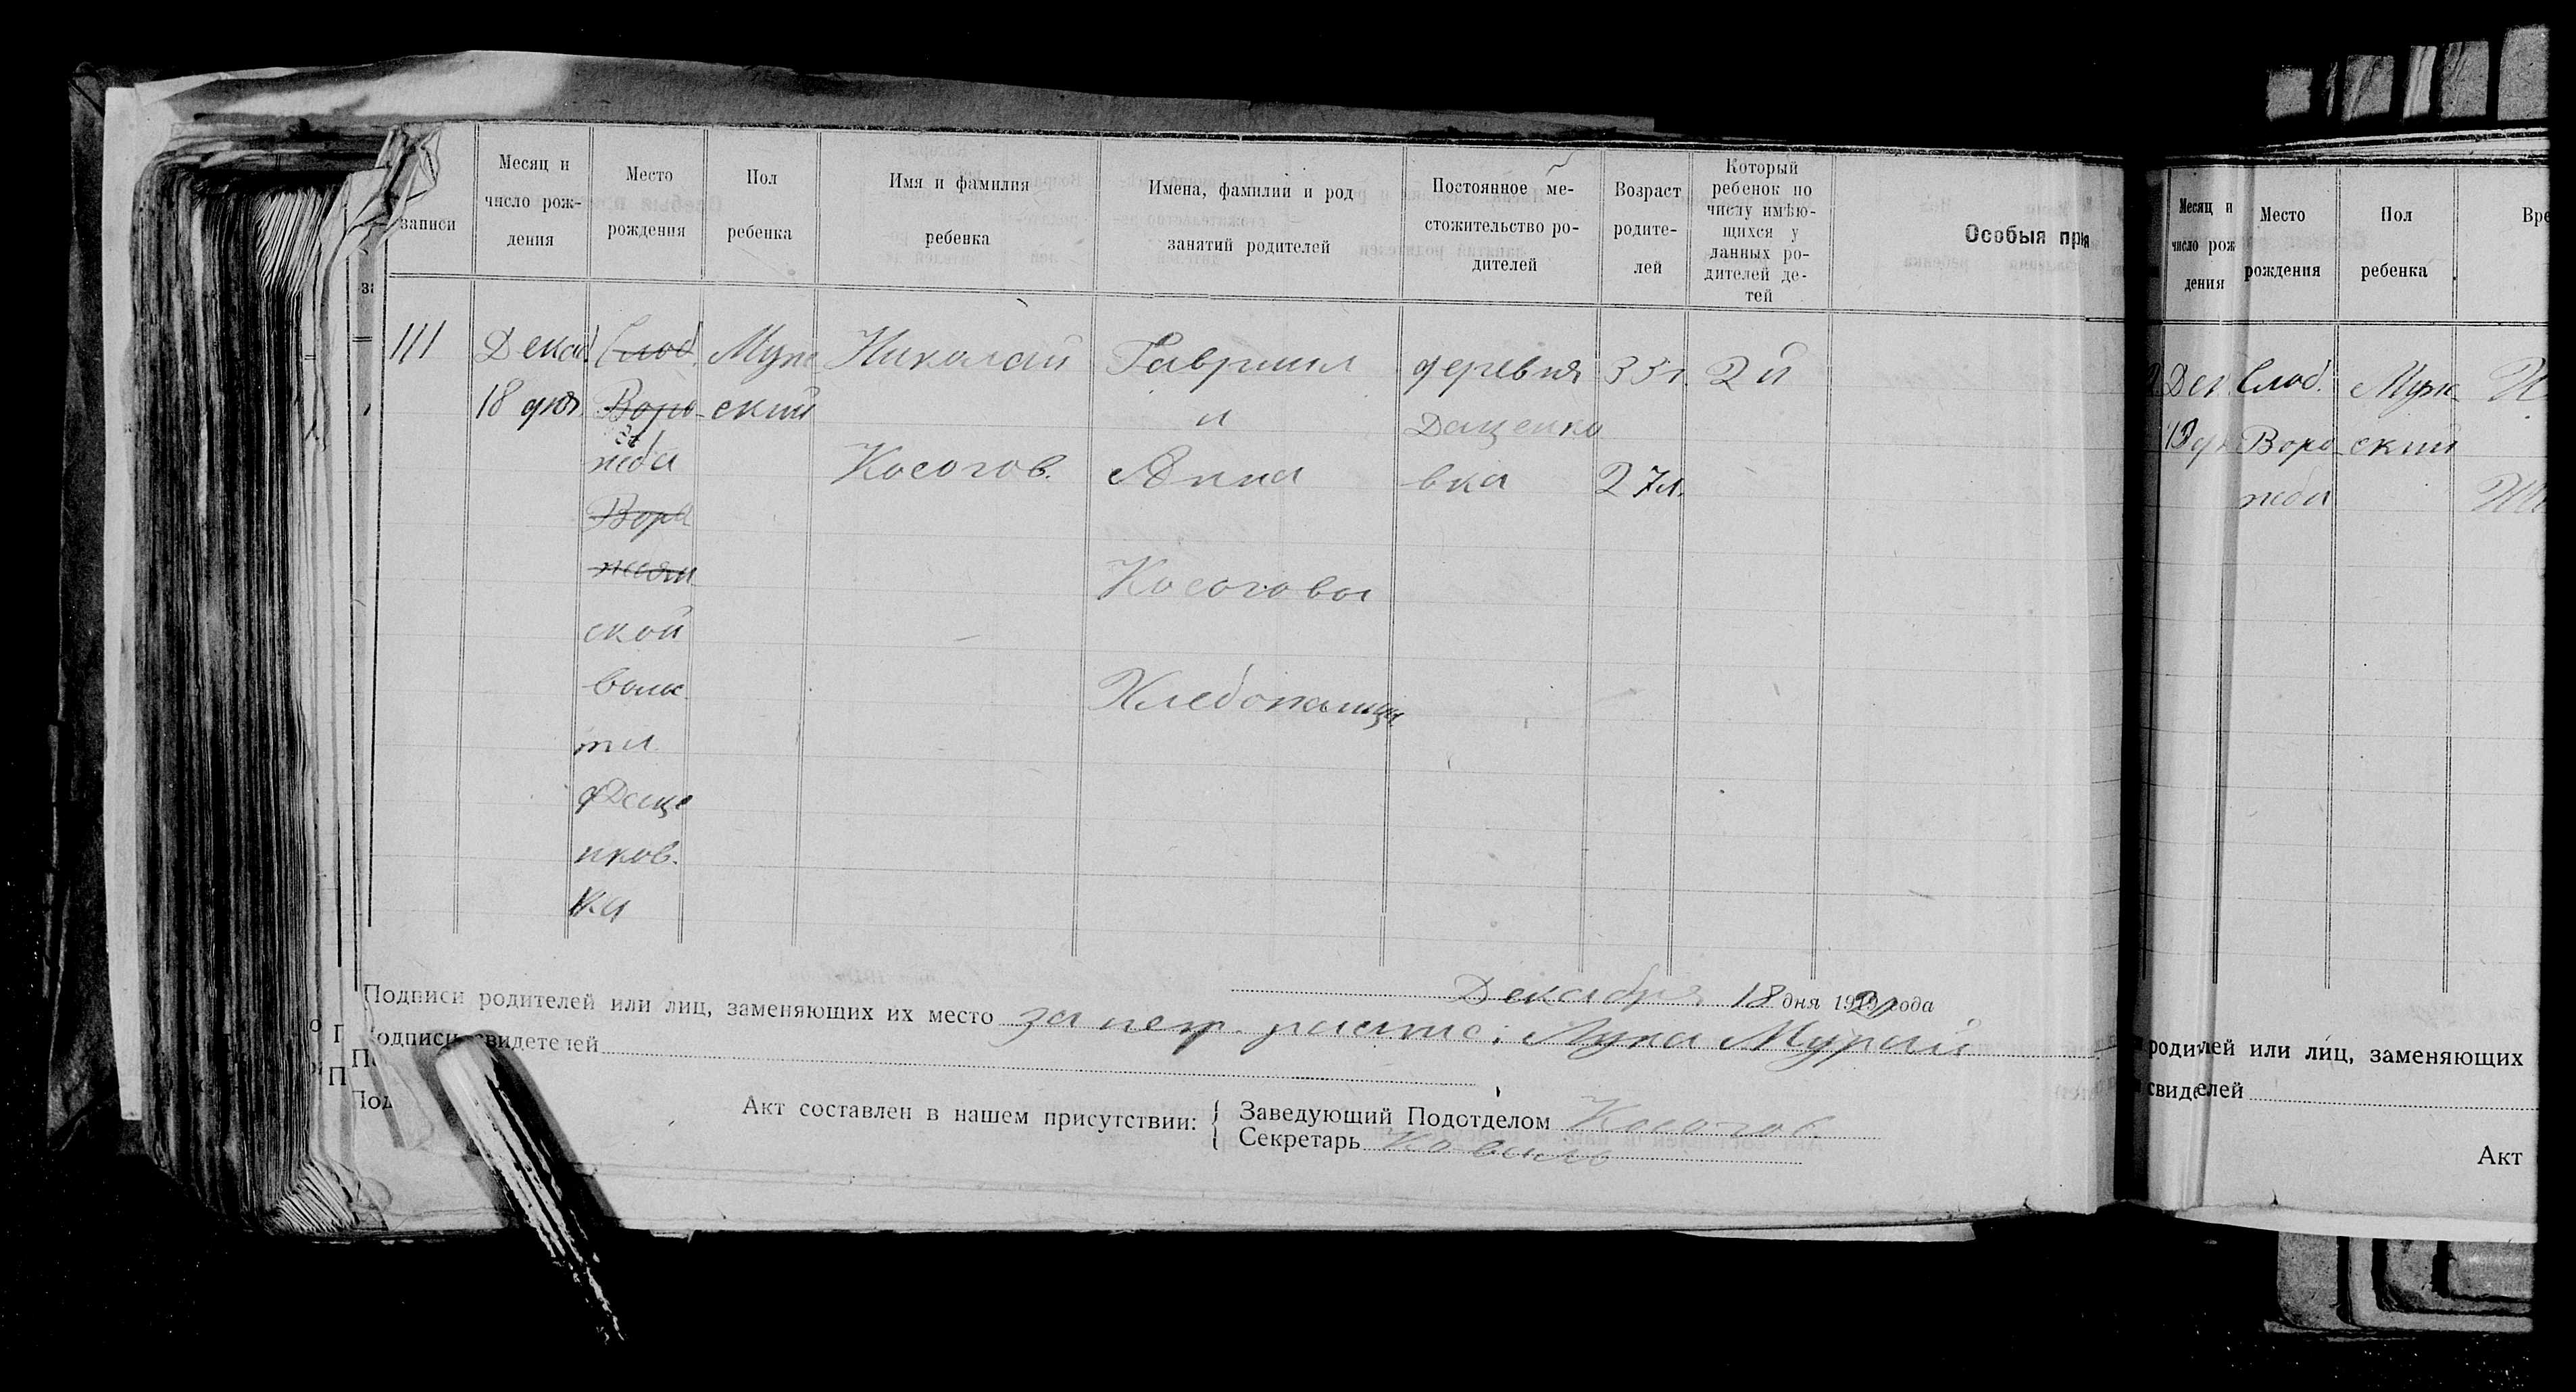 записи
Месяц и
число рож-
дения
Место
рождения
Пол
ребенка
Имя и фамилия
ребенка
Имена, фамилии и род
занятий родителей
Постоянное ме-
стожительство ро-
дителей
Возраст
родите-
лей
Который
ребенок по
числу имѣю-
щихся у
данных ро-
дителей де-
тей
Особыя при
111
Декаб
18 дня
Слоб.
Воро-
жба
Воро
ской
волос
ти
Даце
нков.
ка
Муж
ский
Николай
Косогов.
Гавриил
и
Анна
Косоговы
Хлебопашцы
деревня
Даценко
вка
33 г.
27 л.
2 й
Декабря 18 дня 1920 года
Подписи родителей или лиц, заменяющих их место за негр. распис: Лука Мурай
Подписи свидетелей
Акт составлен в нашем присутствии:
Заведующий Подотделом Косогов
Секретарь Коваль
Месяц и
число рож
дения
Место
рождения
Пол
ребенка
Вре
Дек
Слоб.
Воро
жба
Муж
ский
родителей или лиц, заменяющих
свидетелей
Акт